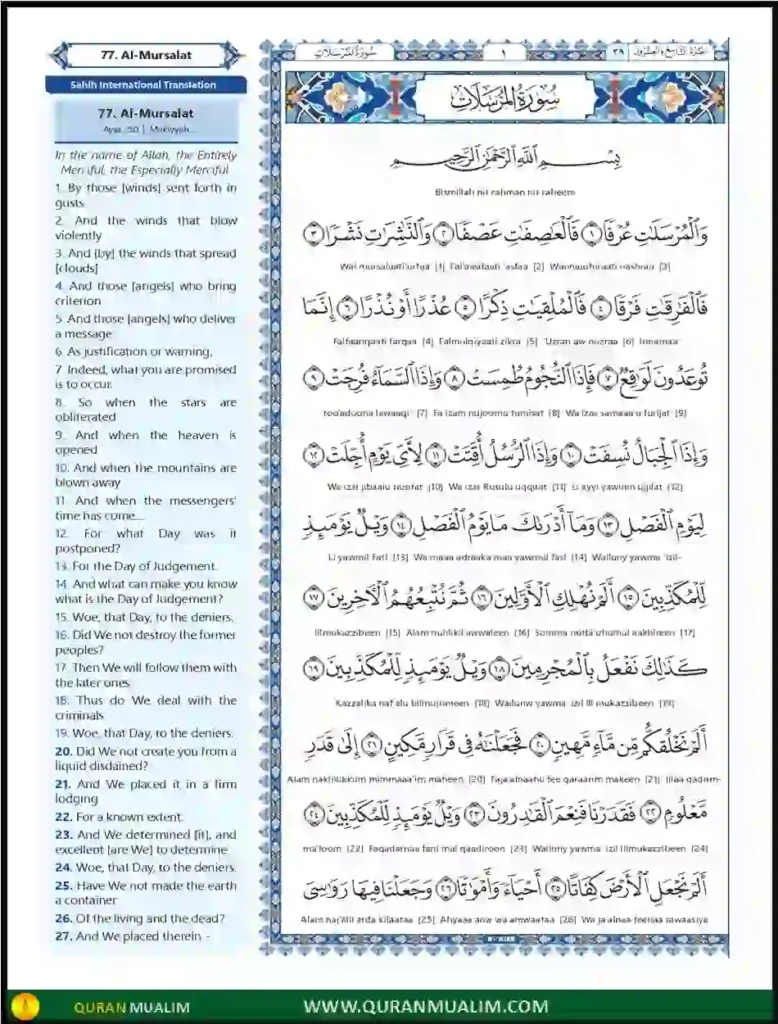 77. Al-Mursalat
Sahih International Translation
77. Al-Mursalat
Ayat 50 | Makiyyah
In the name of Allah, the Entirely
Merciful, the Especially Merciful
1. By those [winds] sent forth in
gusts
2. And the winds that blow
violently
3. And [by] the winds that spread
[clouds]
4. And those [angels] who bring
criterion
5. And those [angels] who deliver
a message
6. As justification or warning,
7. Indeed, what you are promised
is to occur.
8. So when the stars are
obliterated
9. And when the heaven is
opened
10. And when the mountains are
blown away
11. And when the messengers'
time has come...
12. For what Day was it
postponed?
13. For the Day of Judgement.
14. And what can make you know
what is the Day of Judgement?
15. Woe, that Day, to the deniers.
16. Did We not destroy the former
peoples?
17. Then We will follow them with
the later ones.
18. Thus do We deal with the
criminals
19. Woe, that Day, to the deniers.
20. Did We not create you from a
liquid disdained?
21. And We placed it in a firm
lodging
22. For a known extent.
23. And We determined [it], and
excellent [are We] to determine
24. Woe, that Day, to the deniers.
25. Have We not made the earth
a container
26. Of the living and the dead?
27. And We placed therein -
سورة المرسلات ١ ٢٩ الجزء التاسع والعشرون
سُورَةُ المُرْسَلَات
بِسْمِ اللَّهِ الرَّحْمَٰنِ الرَّحِيمِ
Bismillah nir rahman nir raheem
وَالْمُرْسَلَاتِ عُرْفًا ١ فَالْعَاصِفَاتِ عَصْفًا ٢ وَالنَّاشِرَاتِ نَشْرًا ٣
Wal mursalaati'urfaa [1] Fal'aasifaati 'asfaa [2] Wannaashiraati nashraa [3]
فَالْفَارِقَاتِ فَرْقًا ٤ فَالْمُلْقِيَاتِ ذِكْرًا ٥ عُذْرًا أَوْ نُذْرًا ٦ إِنَّمَا
Falfaariqaati farqaa [4] Falmulqiyaati zikra [5] 'Uzran aw nuzraa [6] Innamaa
تُوعَدُونَ لَوَاقِعٌ ٧ فَإِذَا النُّجُومُ طُمِسَتْ ٨ وَإِذَا السَّمَاءُ فُرِجَتْ ٩
too'aduona lawaaqi' [7] Fa izam nujoomu tumisat [8] Wa izas samaaa'u furijat [9]
وَإِذَا الْجِبَالُ نُسِفَتْ ١٠ وَإِذَا الرُّسُلُ أُقِّتَتْ ١١ لِأَيِّ يَوْمٍ أُجِّلَتْ ١٢
Wa izal jibaalu nusifat [10] Wa izar Rusulu uqqitat [11] Li ayyi yawmin ujjilat [12]
لِيَوْمِ الْفَصْلِ ١٣ وَمَا أَدْرَاكَ مَا يَوْمُ الْفَصْلِ ١٤ وَيْلٌ يَوْمَئِذٍ
Li yawmil Fasl [13] Wa maaa adraaka maa yawmul fasl [14] Wailuny yawma 'izil-
لِّلْمُكَذِّبِينَ ١٥ أَلَمْ نُهْلِكِ الْأَوَّلِينَ ١٦ ثُمَّ نُتْبِعُهُمُ الْآخِرِينَ ١٧
lilmukazzibeen [15] Alam nuhlikil awwaleen [16] Summa nutbi'uhumul aakhireen [17]
كَذَٰلِكَ نَفْعَلُ بِالْمُجْرِمِينَ ١٨ وَيْلٌ يَوْمَئِذٍ لِّلْمُكَذِّبِينَ ١٩
Kazzalika naf'alu bilmujrimeen [18] Wailunw yawma 'izil lil mukazzibeen [19]
أَلَمْ نَخْلُقكُّم مِّن مَّاءٍ مَّهِينٍ ٢٠ فَجَعَلْنَاهُ فِي قَرَارٍ مَّكِينٍ ٢١ إِلَىٰ قَدَرٍ
Alam nakhlukkum mimmaaa'im maheen [20] Faja'alnaahu fee qaraarim makeen [21] Illaa qadrim-
مَّعْلُومٍ ٢٢ فَقَدَرْنَا فَنِعْمَ الْقَادِرُونَ ٢٣ وَيْلٌ يَوْمَئِذٍ لِّلْمُكَذِّبِينَ ٢٤
ma'loom [22] Faqadarnaa fani'mal qaadiroon [23] Wailuny yawma 'izil lilmukazzibeen [24]
أَلَمْ نَجْعَلِ الْأَرْضَ كِفَاتًا ٢٥ أَحْيَاءً وَأَمْوَاتًا ٢٦ وَجَعَلْنَا فِيهَا رَوَاسِيَ
Alam naj'alil arda kifaataa [25] Ahyaaa anw wa amwaataa [26] Wa ja'alnaa feehaa rawaasiya
QURAN MUALIM
WWW.QURANMUALIM.COM